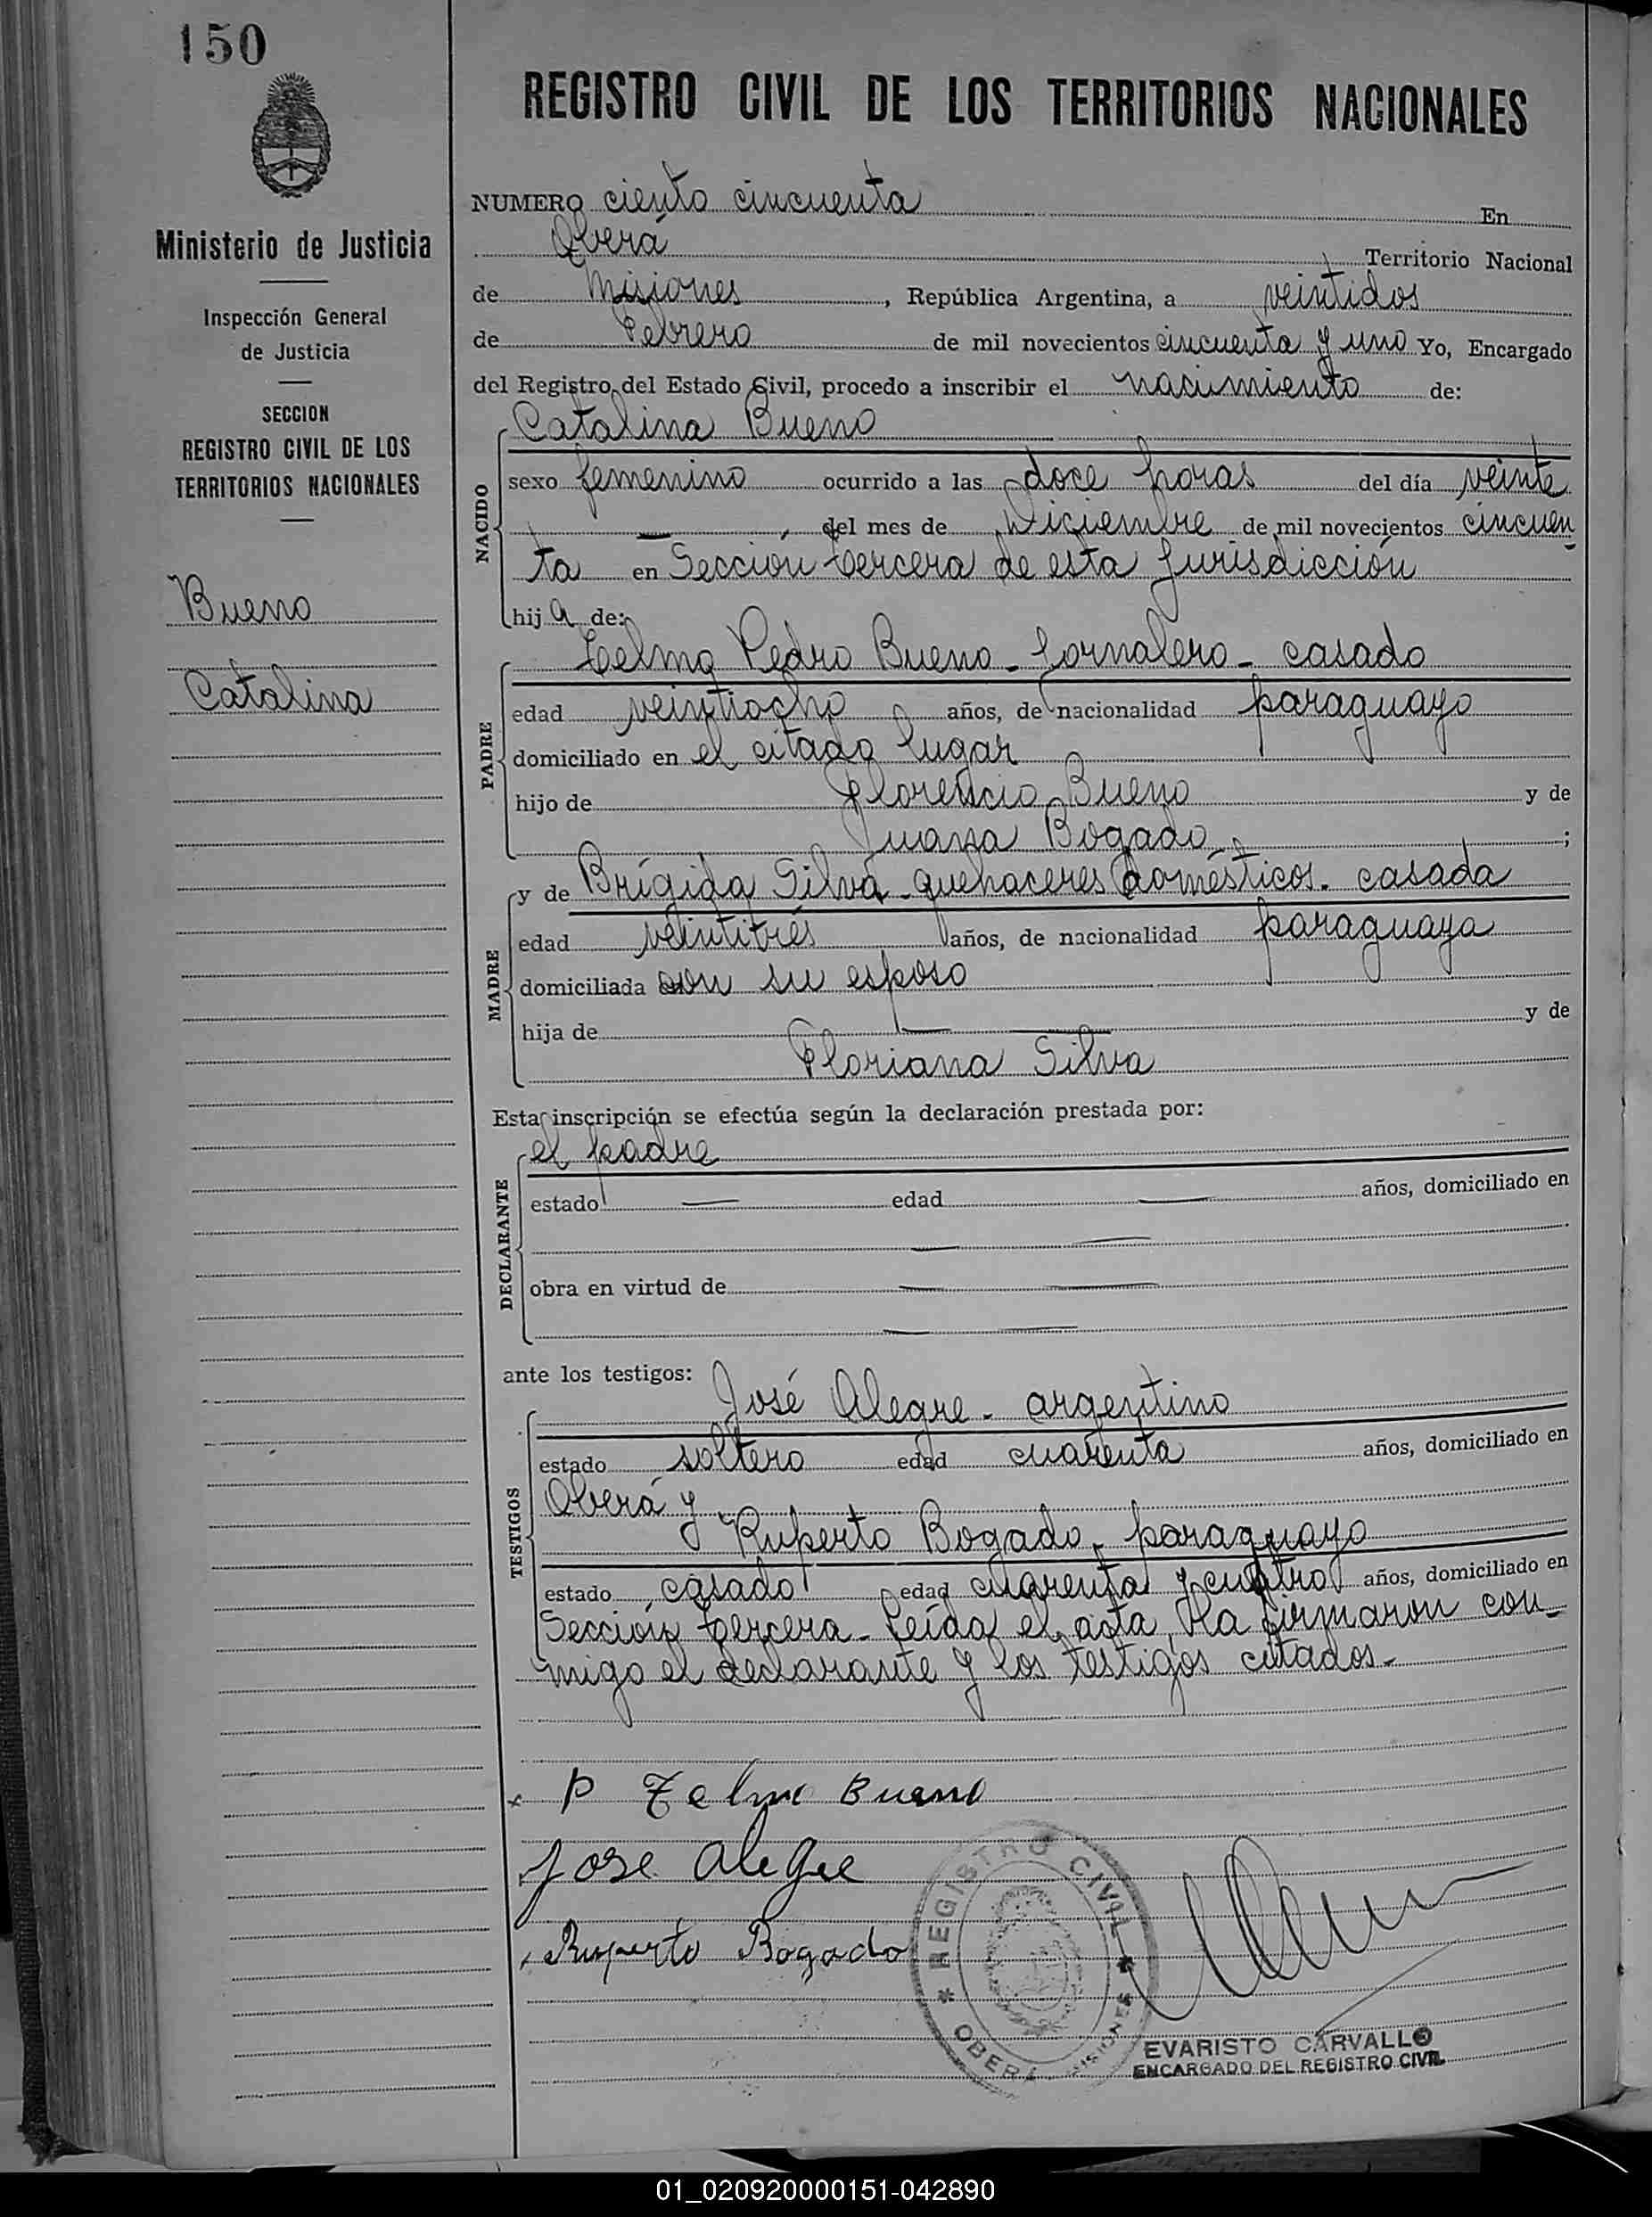 150
REGISTRO CIVIL DE LOS TERRITORIOS NACIONALES
Ministerio de Justicia
Inspección General
de Justicia
SECCION
REGISTRO CIVIL DE LOS
TERRITORIOS NACIONALES
Bueno
Catalina
NUMERO ciento cincuenta En
Oberá Territorio Nacional
de Misiones, República Argentina, a veintidos
de Febrero de mil novecientos cincuenta y uno Yo, Encargado
del Registro del Estado Civil, procedo a inscribir el nacimiento de:
Catalina Bueno
NACIDO
sexo femenino ocurrido a las doce horas del día veinte
— del mes de Diciembre de mil novecientos cincuen
ta en Sección tercera de esta Jurisdicción
hij a de:
Telmo Pedro Bueno - Jornalero - casado
PADRE
edad veintiocho años, de nacionalidad paraguayo
domiciliado en el citado lugar
hijo de Florencio Bueno y de
Juana Bogado ;
y de Brígida Silva - quehaceres domésticos - casada
MADRE
edad veintitrés años, de nacionalidad paraguaya
domiciliada con su esposo
hija de — — y de
Floriana Silva
Esta inscripción se efectúa según la declaración prestada por:
el padre
DECLARANTE
estado — edad — años, domiciliado en
— —
obra en virtud de — —
— —
ante los testigos:
José Alegre - argentino
TESTIGOS
estado soltero edad cuarenta años, domiciliado en
Oberá y
Ruperto Bogado - paraguayo
estado casado edad cuarenta y cuatro años, domiciliado en
Sección tercera - Leída el acta, la firmaron con-
migo el declarante y los testigos citados -
x P Telmo Bueno
Jose Alegre
Ruperto Bogado
REGISTRO CIVIL
* OBERÁ MISIONES *
EVARISTO CARVALLO
ENCARGADO DEL REGISTRO CIVIL
01_020920000151-042890